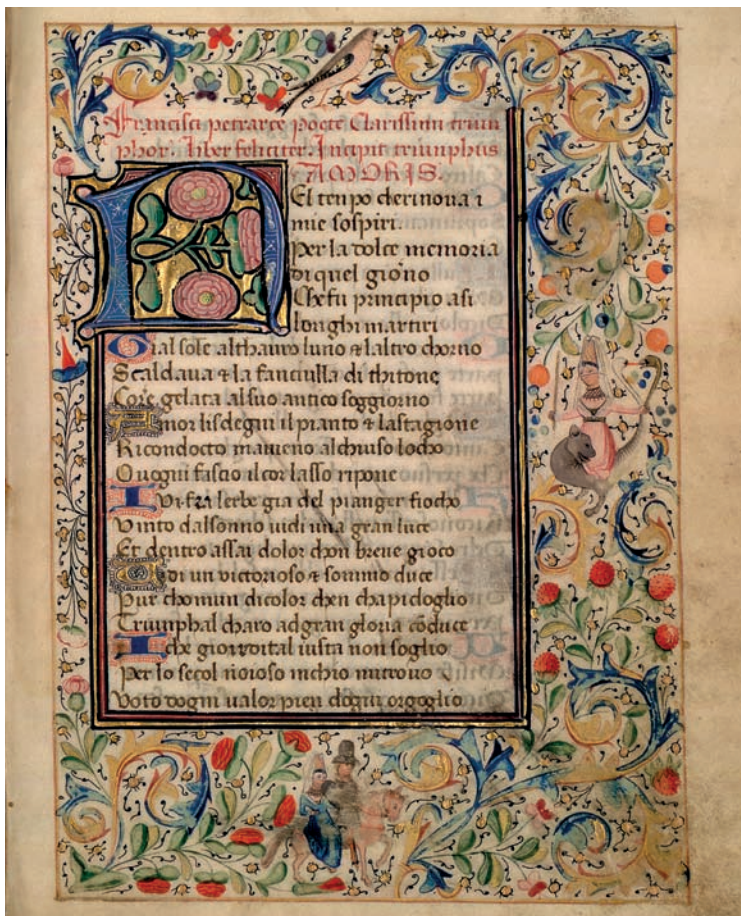 Francisci petrarce poete Clarissimi trium
phor. Liber feliciter. Incipit triumphus
AMORIS.
NEl tenpo cherinova i
mie sospiri.
Per la dolce memoria
di quel giorno
Che fu principio asi
longhi martiri
Gia lsole althauro luno & laltro chorno
Scaldava & la fanciulla di thitone
Core gelata alsuo antico soggiorno
Amor lisdegni il pianto & lastagione
Ricondocto maveno alchiuso locho
Ovogni fascio il cor lasso ripone
IVi fra lerbe gia del pianger fiocho
Vinto dalsonno vidi una gran luce
Et dentro assai dolor chon breve gioco
Vidi un victorioso & sommo duce
Pur chomun dicolor chen chapidoglio
Triumphal charo ad gran gloria cõduce
I che gioir di tal vista non soglio
Per lo secol noioso inchio mitrovo
Voto dogni valor pien dogni orgoglio